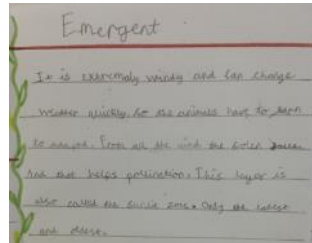 Emergent
It is extremely windy and can change
weather quickly. So the animals have to
to adapt. From all the wind the
has that helps pollination. This layer is
also called the sunlit zone. Only the
and